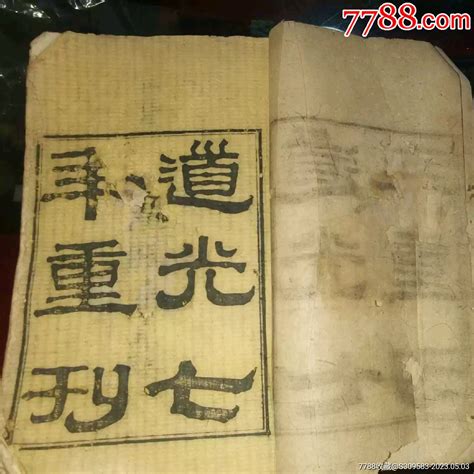 7788.com
道光七
年重刊
7788收藏@S309583 2023.05.03